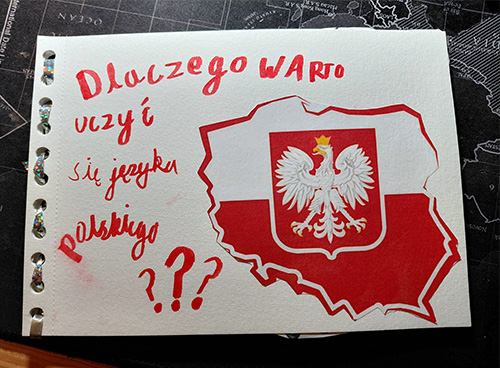 Dlaczego WARTO
uczyć
się języka
polskiego
???